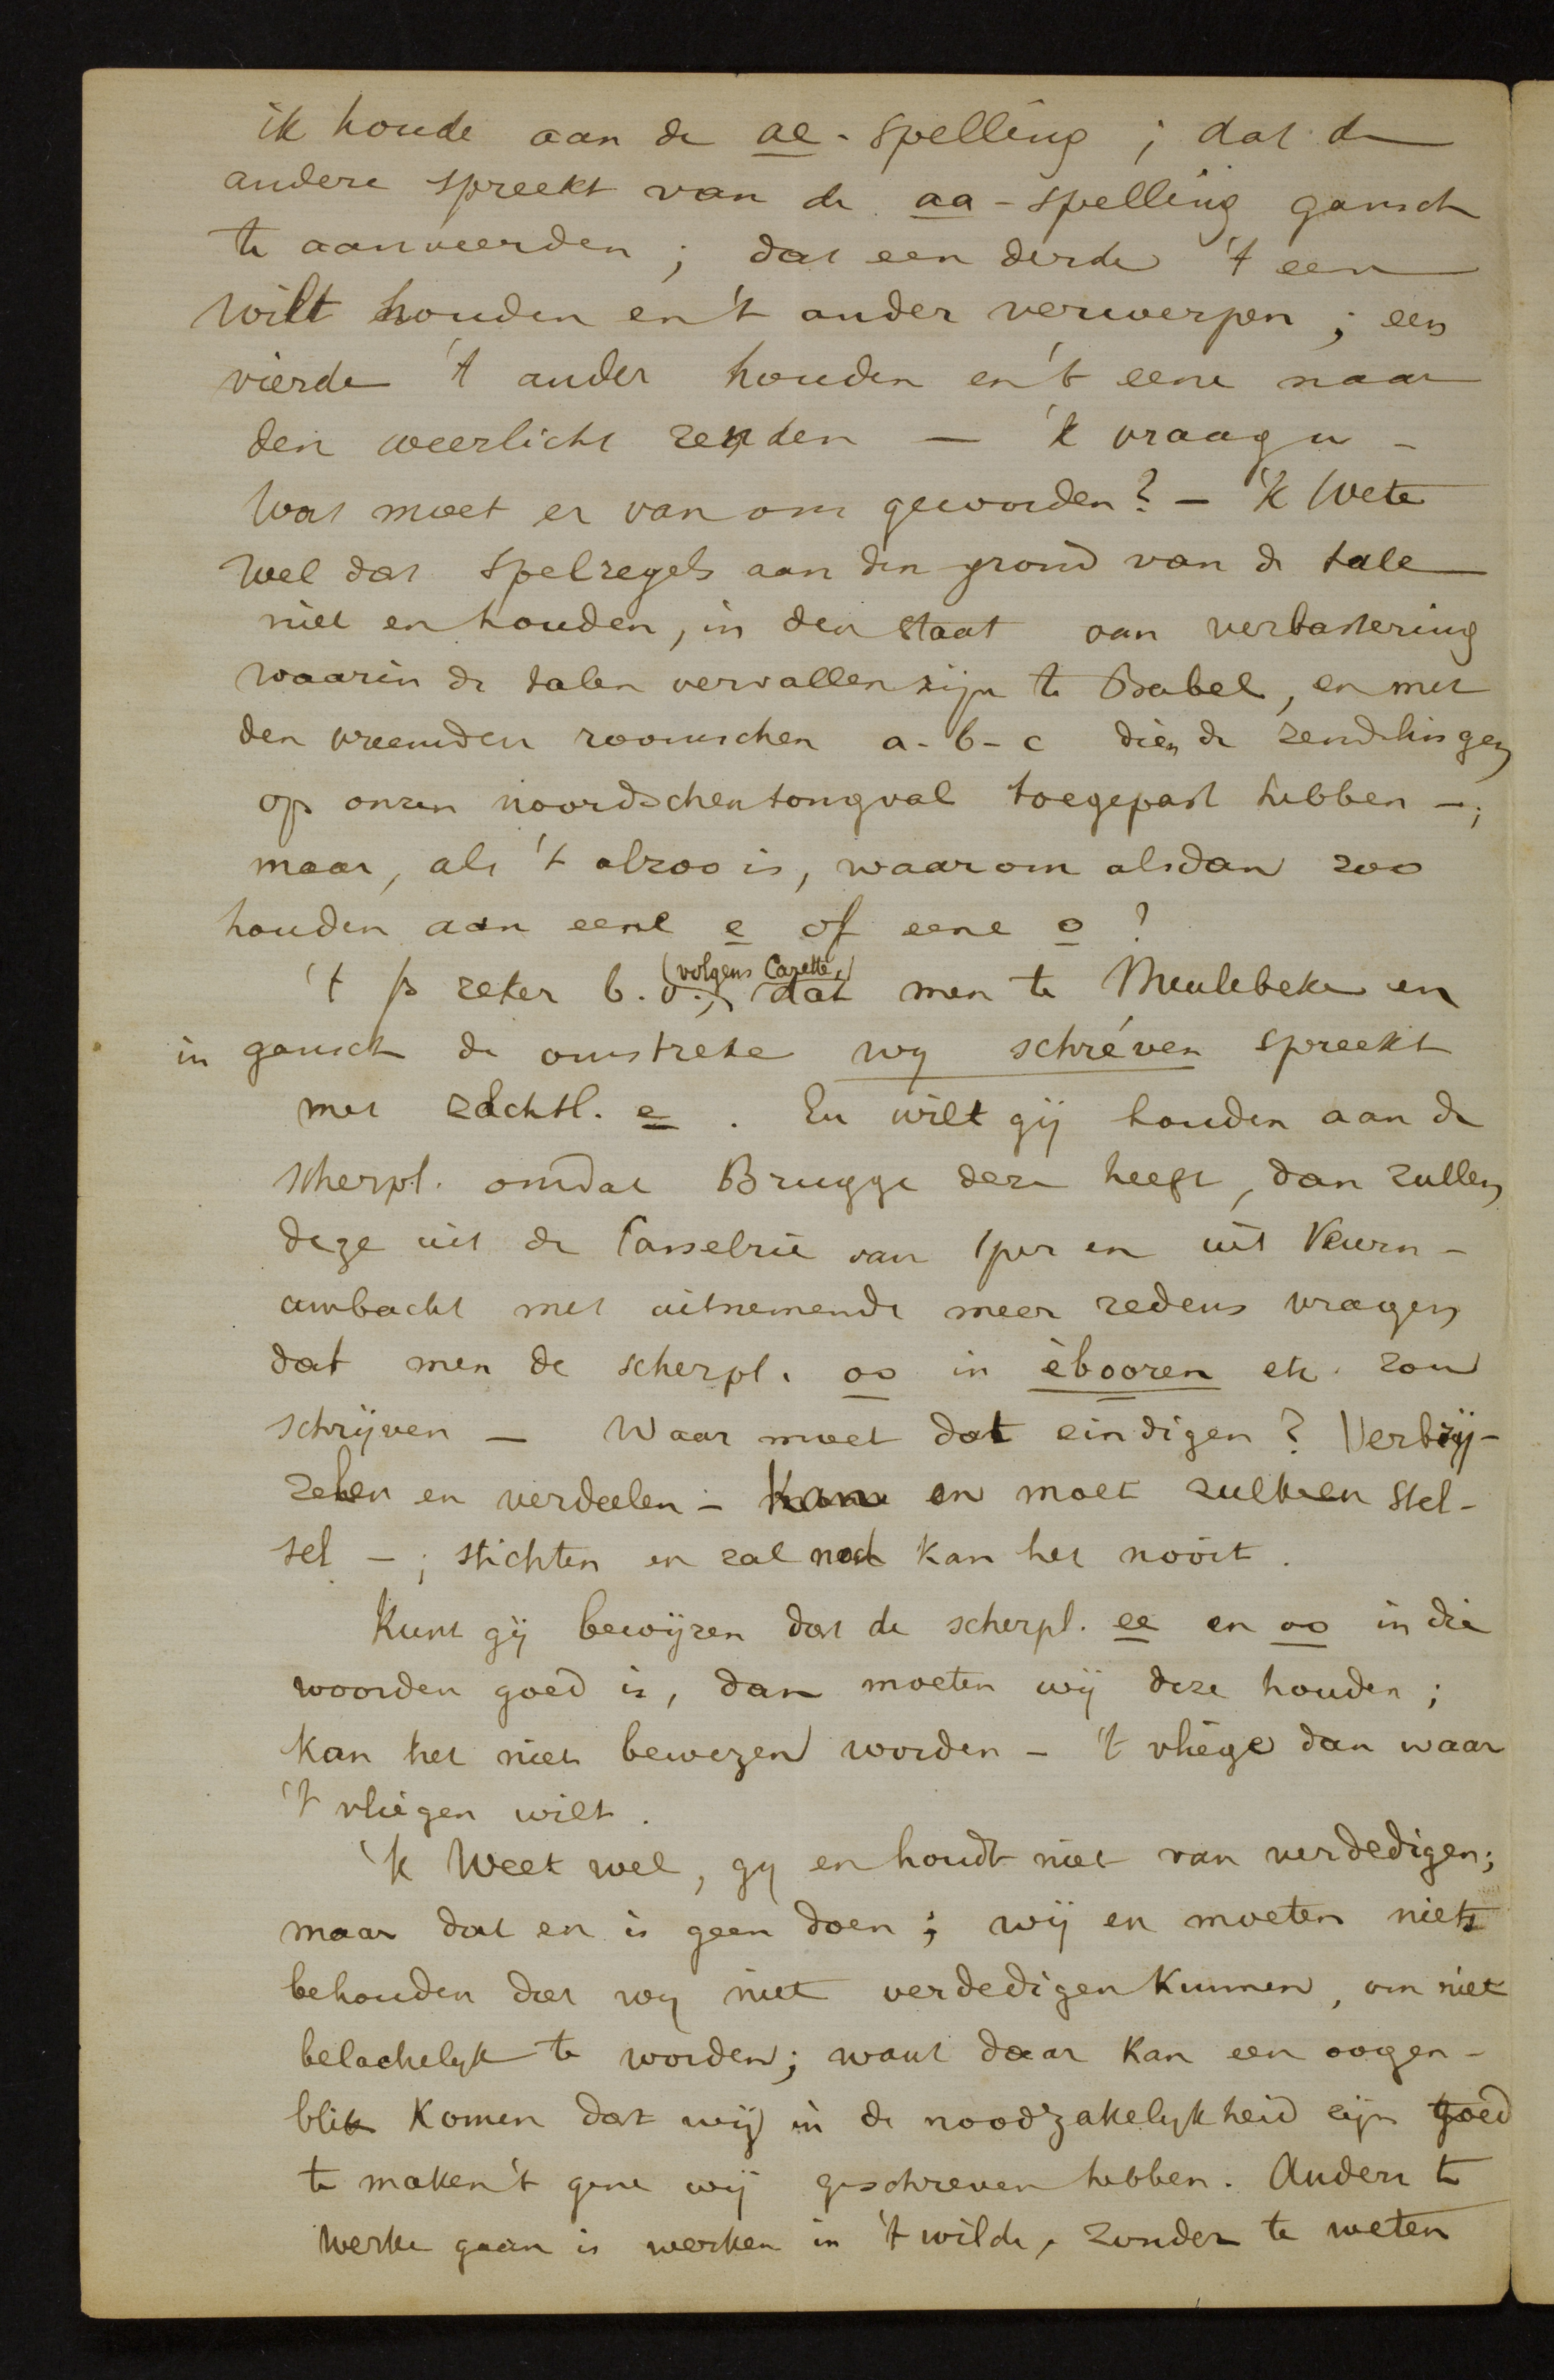 ik houde aan de ae-spelling ; dat de
andere spreekt van de aa-spelling gansch
te aanveerden ; dat een derde 't een
wilt houden en 't ander verwerpen ; een
vierde 't ander houden en 't eene naar
den weerlicht zenden — 'k vraag u -
Wat moet er van ons geworden? — 'k Wete
wel dat spelregels aan den grond van de tale
niet en houden, in den staat van verbastering
waarin de talen vervallen zijn te Babel, en met
den vreemden roomschen a-b-c dien de zendelingen
op onzen noordschen tongval toegepast hebben —;
maar, als 't alzoo is, waarom alsdan zoo
houden aan eene e of eene o ?
't Is zeker b.v., (volgens Cazette,) dat men te Meulebeke en
in gansch de omstreke wy schréven spreekt
met zachtl. e . En wilt gij houden aan de
scherpl. omdat Brugge deze heeft, dan zullen
deze uit de Casselrie van Iper en uit Veurn-
ambacht met uitnemende meer redens vragen
dat men de scherpl. oo in èbooren etc. zou
schrijven — Waar moet dat eindigen ? Verbrij-
zelen en verdeelen - kan en moet zulk een stel-
sel —; stichten en zal noch kan het nooit.
Kunt gij bewijzen dat de scherpl. ee en oo in die
woorden goed is, dan moeten wij deze houden ;
kan het niet bewezen worden - 't vliege dan waar
't vliegen wilt.
'k Weet wel, gy en houdt niet van verdedigen ;
maar dat en is geen doen ; wij en moeten niets
behouden dat wy niet verdedigen kunnen, om niet
belachelyk te worden ; want daar kan een oogen-
blik komen dat wij in de noodzakelykheid zijn goed
te maken 't gene wij geschreven hebben. Anders te
werke gaan is werken in 't wilde, zonder te weten